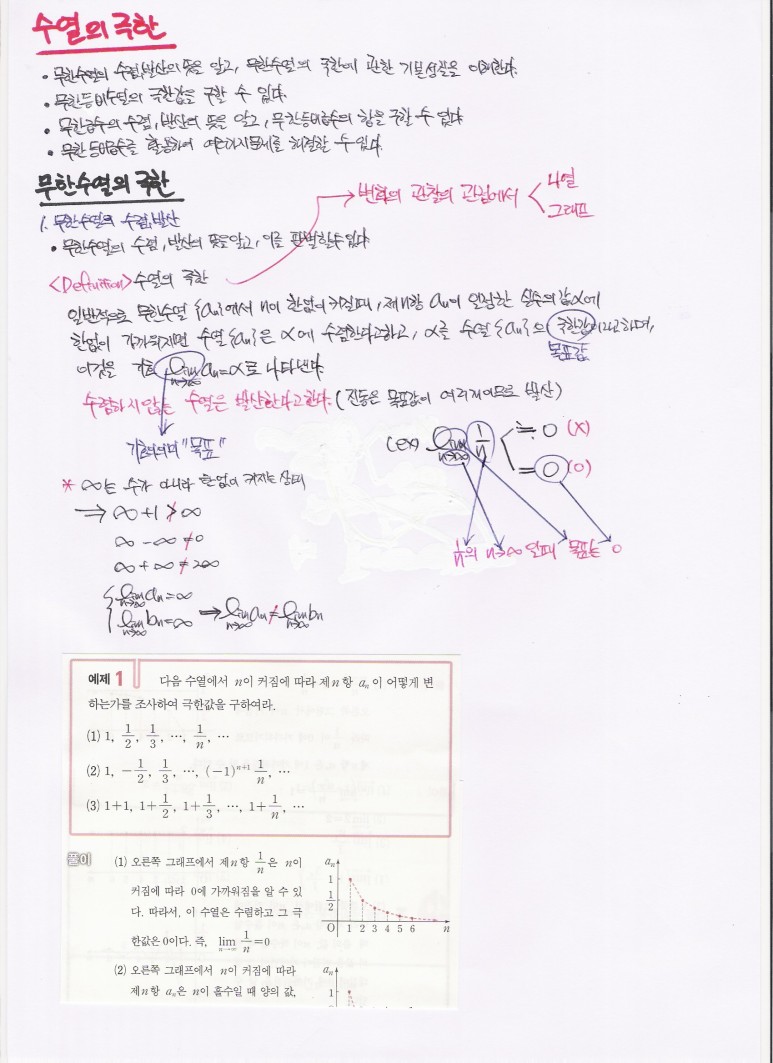 수열의 극한
• 무한수열의 수렴,발산의 뜻을 알고, 무한수열의 극한에 관한 기본성질을 이해한다.
• 무한등비수열의 극한값을 구할 수 있다.
• 무한급수의 수렴, 발산의 뜻을 알고, 무한등비급수의 합을 구할 수 있다
• 무한등비급수를 활용하여 여러가지문제를 해결할 수 있다.
무한수열의 극한
→ 변화의 관찰의 관점에서 < 나열
그래프
1. 무한수열의 수렴,발산
• 무한수열의 수렴, 발산의 뜻을알고, 이를 판별할수있다
<Definition> 수열의 극한
일반적으로 무한수열 {an}에서 n이 한없이 커질때, 제n항 an이 일정한 실수의값 α에
한없이 가까워지면 수열{an}은 α에 수렴한다고하고, α를 수열{an}의 극한값이라고하며,
목표값
이것을 기호 lim n→∞ an=α로 나타낸다.
수렴하지않는 수열은 발산한다고한다. (진동은 목표값이 여러개이므로 발산)
"목표"
(ex) lim n→∞ 1/n ≒ 0 (X)
= 0 (O)
* ∞는 수가 아니라 한없이 커지는 상태
⇒ ∞+1 ≯ ∞
∞-∞≠0
∞+∞≠2∞
1/n의 n→∞ 일때 목표는 0
{ lim n→∞ an=∞
lim n→∞ bn=∞ ⇒ lim n→∞ an ≠ lim n→∞ bn
예제 1 다음 수열에서 n이 커짐에 따라 제n항 an이 어떻게 변
하는가를 조사하여 극한값을 구하여라.
(1) 1, 1/2, 1/3, …, 1/n, …
(2) 1, -1/2, 1/3, …, (-1)^{n+1} 1/n, …
(3) 1+1, 1+1/2, 1+1/3, …, 1+1/n, …
풀이 (1) 오른쪽 그래프에서 제n항 1/n은 n이
커짐에 따라 0에 가까워짐을 알 수 있
다. 따라서, 이 수열은 수렴하고 그 극
한값은 0이다. 즉, lim n→∞ 1/n=0
an
1
1/2
O 1 2 3 4 5 6 n
(2) 오른쪽 그래프에서 n이 커짐에 따라
제n항 an은 n이 홀수일 때 양의 값,
an
1